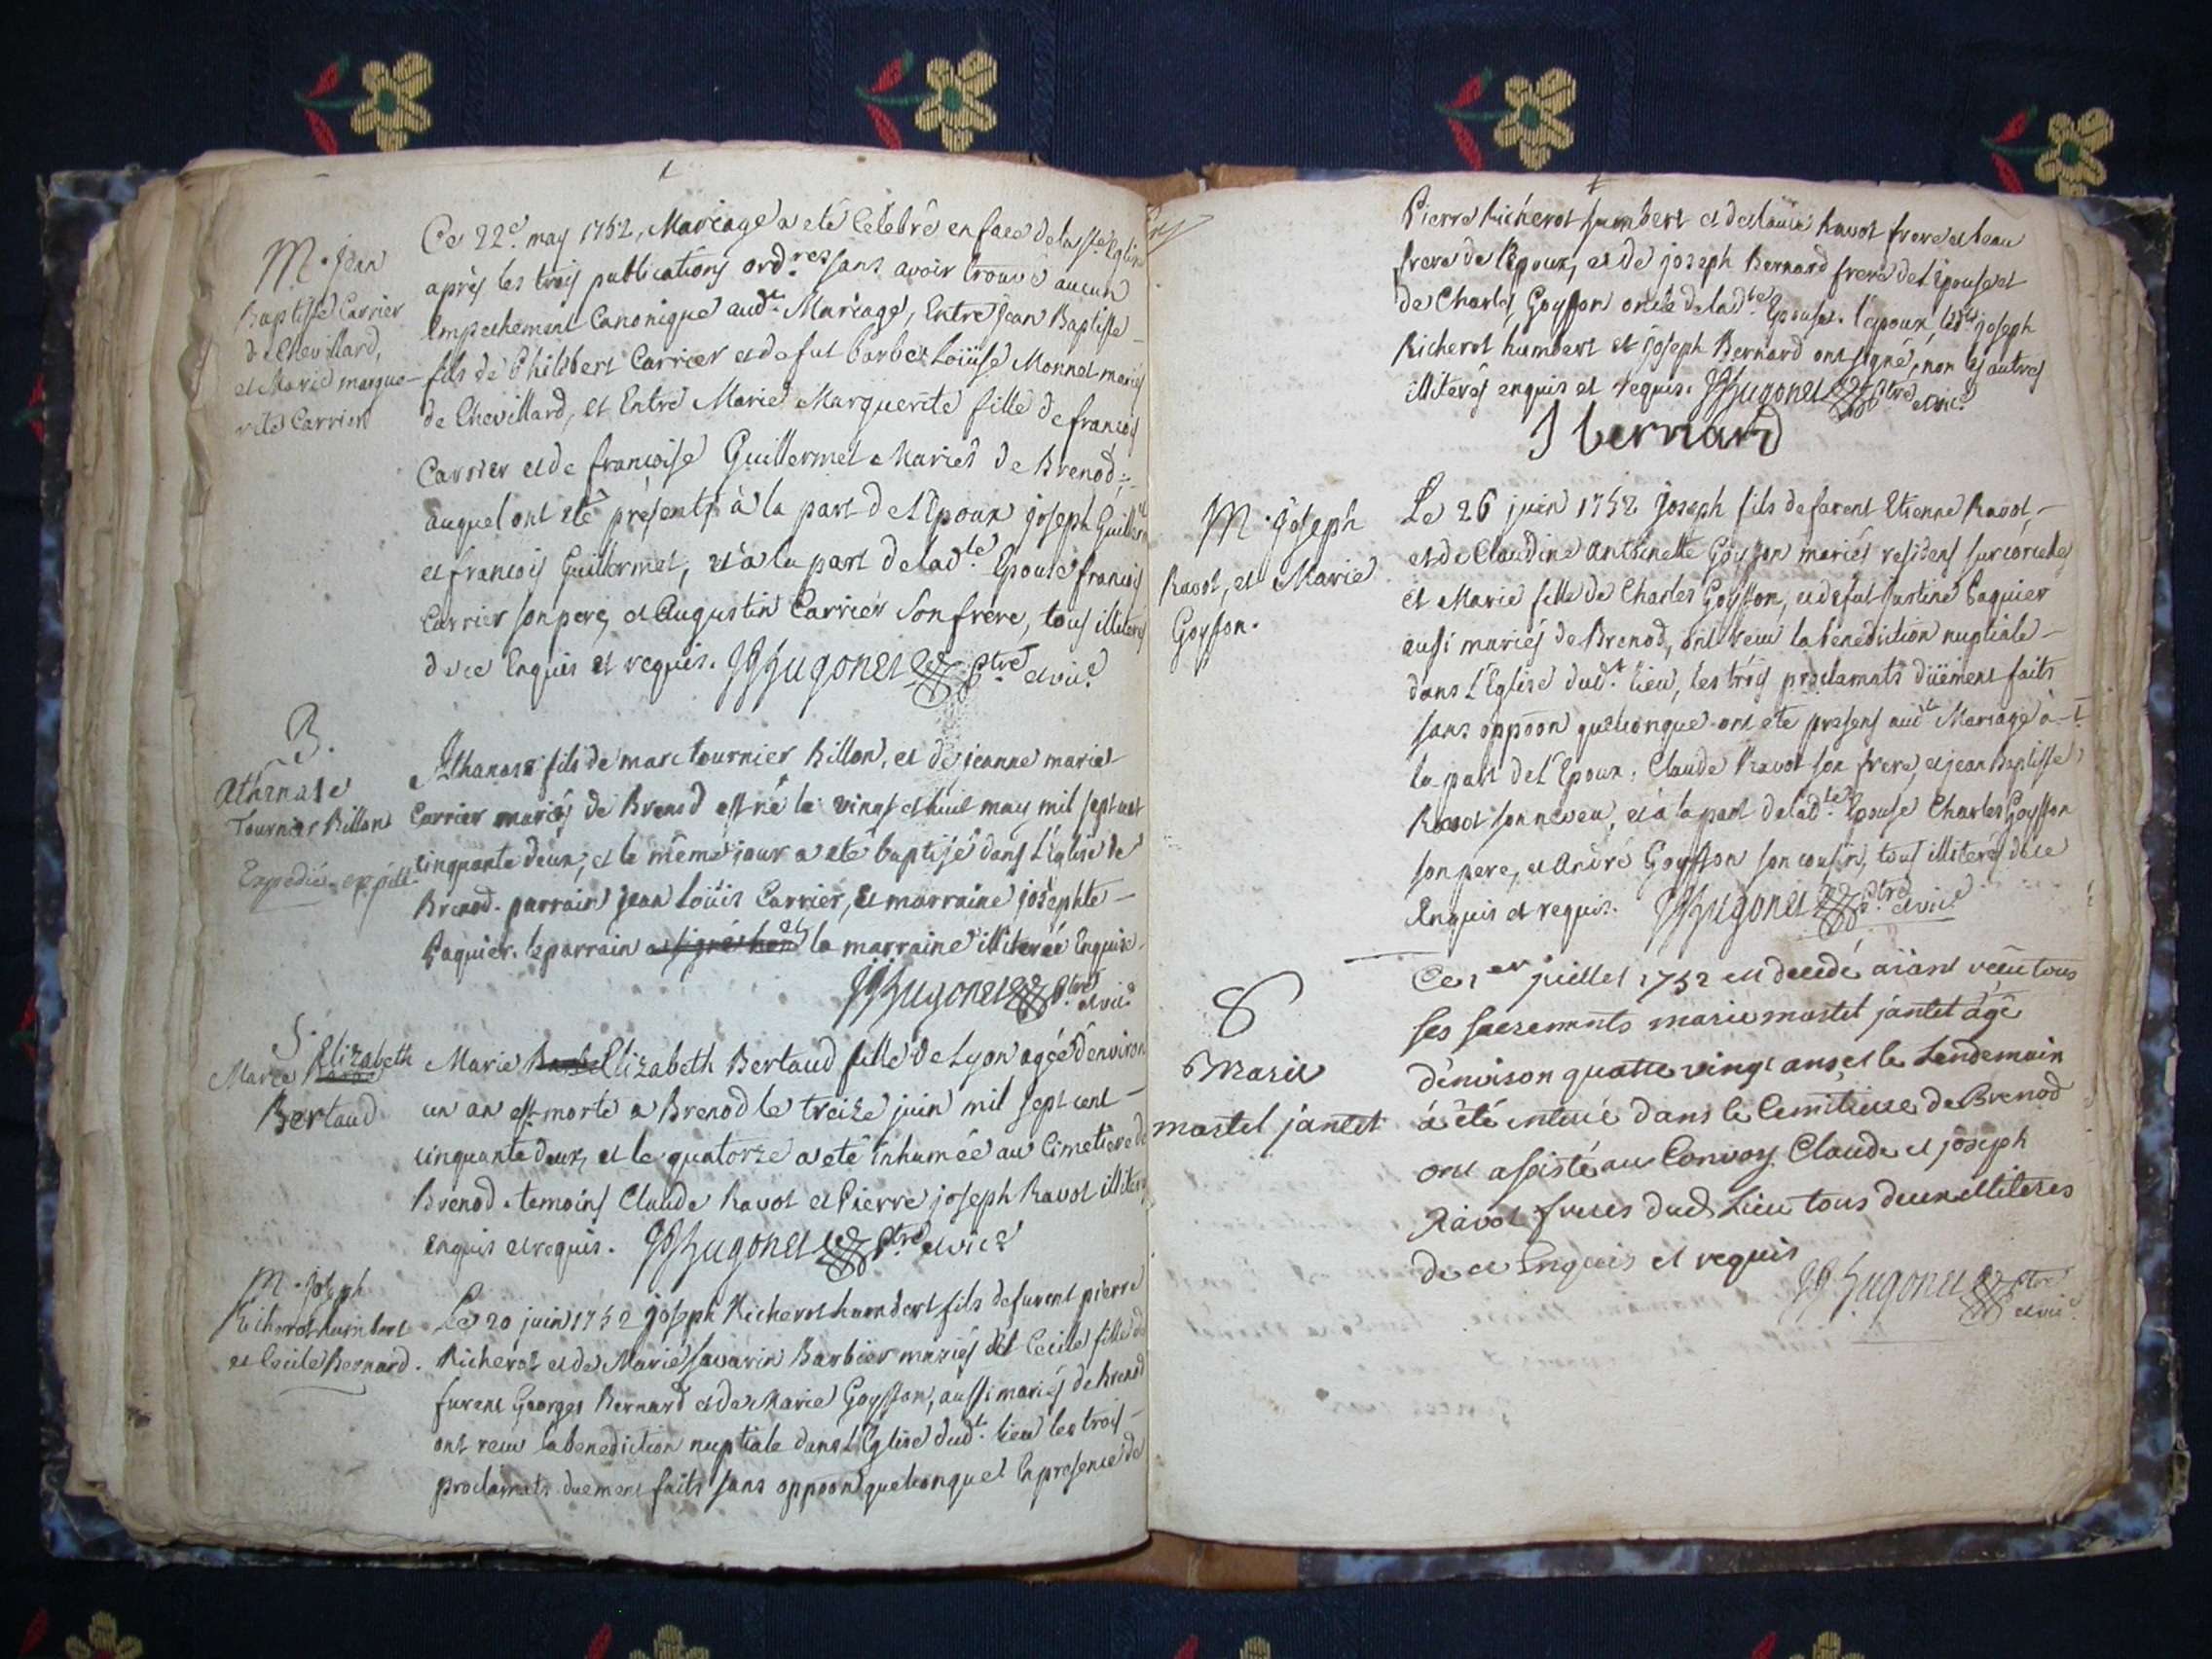 M. Jean
Baptiste Carrier
de Chevillard,
et Marie margue-
rite Carrier
Ce 22e. may 1752, Mariage a eté Celebré en face de la Ste Eglise
après les trois publications ord.res sans avoir trouvé aucun
Empechement Canonique aud.t Mariage, Entre Jean Baptiste
fils de Philibert Carrier et de fut Barbe Loüise Monnet mariés
de Chevillard, et Entre Marie Marguerite fille de francois
Carrier et de francoise Guillermet Mariés de Brenod;
auquel ont eté présents à la part de l'Epoux joseph Guillermet
et francois Guillermet, et à la part de lad.te Epouse francois
Carrier son pere, et Augustin Carrier son frere, tous illiterés
de ce Enquis et requis. JJHugonet Ptre et vic.e
B.
Athanase
Tournier Billon
Expédié
Athanase fils de marc tournier Billon, et de jeanne marie
Carrier mariés de Brenod est né le vingt et huit may mil sept cent
cinquante deux, et le même jour a eté baptisé dans l'Eglise de
Brenod. parrain Jean Loüis Carrier, et marraine josephte
Paquier. le parrain a signé non et la marraine illiterée Enquise.
JJHugonet Ptre et vic.e
S.
Elizabeth
Marie
Bertaud
Marie Elizabeth Bertaud fille de Lyon agée d'environ
un an est morte a Brenod le treize juin mil sept cent
cinquante deux, et le quatorze a eté inhumée au Cimetiere de
Brenod. temoins Claude Ravot et Pierre joseph Ravot illiterés
enquis et requis. JJHugonet Ptre et vic.e
M. Joseph
Richerot humbert
et Cecile Bernard.
Le 20 juin 1752 joseph Richerot humbert fils de furent pierre
Richerot et de Marie Savarin Barbier mariés et Cecile fille de
furent Georges Bernard et de Marie Goyffon, aussi mariés de Brenod
ont reçu la benediction nuptiale dans l'Eglise dud.t lieu les trois
proclamats duement faits sans oppoon quelconque En presence de
Pierre Richerot humbert et de Claude Ravot frere et beau
frere de l'Epoux, et de joseph Bernard frere de l'Epouse et
de Charles Goyffon oncle de lad.te Epouse. l'epoux, led.t joseph
Richerot humbert et joseph Bernard ont signé, non les autres
illiterés enquis et requis. JJHugonet Ptre et vic.e
J bernard
M. joseph
Ravot, et Marie
Goyffon.
Le 26 juin 1752 Joseph fils de furent Etienne Ravot,
et de Claudine Antoinette Goyffon mariés residens sur corcelles
et Marie fille de Charles Goyffon, et de fut justine Paquier
aussi mariés de Brenod, ont reçu la benediction nuptiale
dans l'Eglise dud.t lieu, les trois proclamats düëment faits
sans oppoon quelconque ont eté presens aud.t Mariage à
la part de l'Epoux: Claude Ravot son frere, et jean Baptiste
Ravot son neveu, et à la part de lad.te Epouse Charles Goyffon
son pere, et André Goyffon son cousin, tous illiterés de ce
Enquis et requis. JJHugonet Ptre et vic.e
S
Marie
mortel jantet
Ce 1er juillet 1752 est decedé aïant reçu tous
ses sacrements marie mortel jantet agé
d'environ quatre vingt ans et le Lendemain
a été enterré dans le Cemitiere de Brenod
ont assisté au Convoy Claude et joseph
Ravot freres dud. Lieu tous deux illiteres
de ce Enquis et requis
JJHugonet Ptre
et vic.e